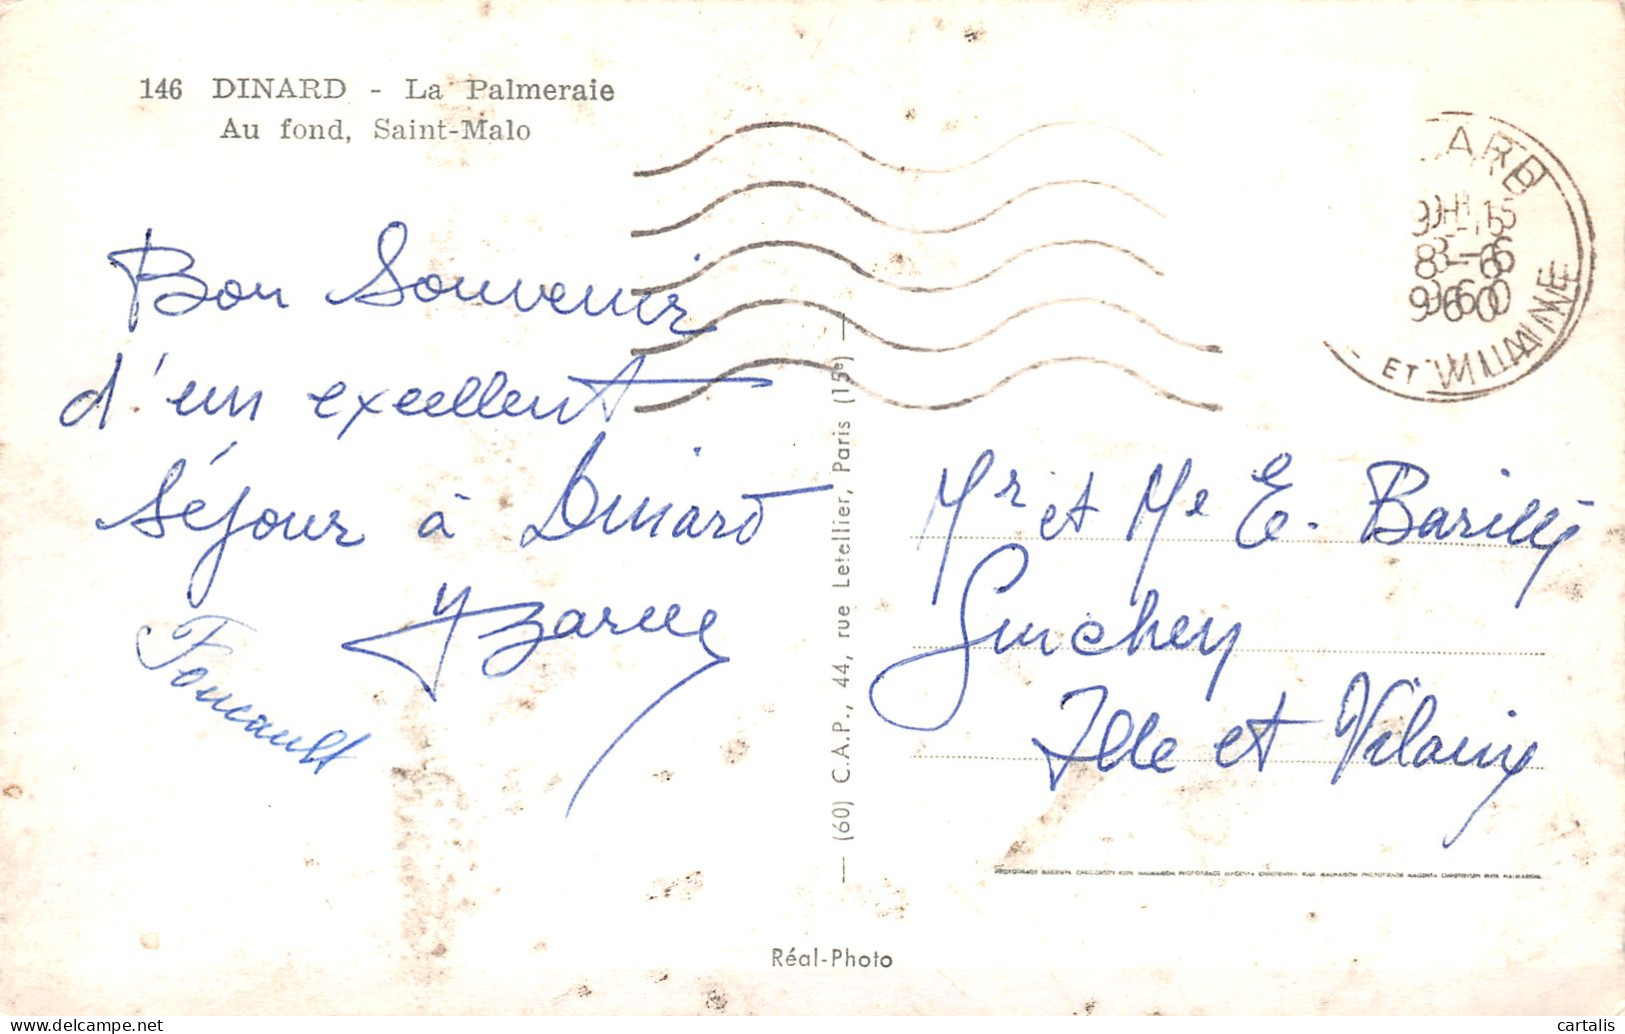 146 DINARD - La Palmeraie
Au fond, Saint-Malo
Bon Souvenir
d'un excellent
Séjour à Dinard
Foucault
ARD
9H15
8-6
960
ET VILAINE
(60) C.A.P., 44, rue Letellier, Paris (15e)
Mr et Me E.
Guichen
Ille et Vilaine
Réal-Photo
cartalis
delcampe.net